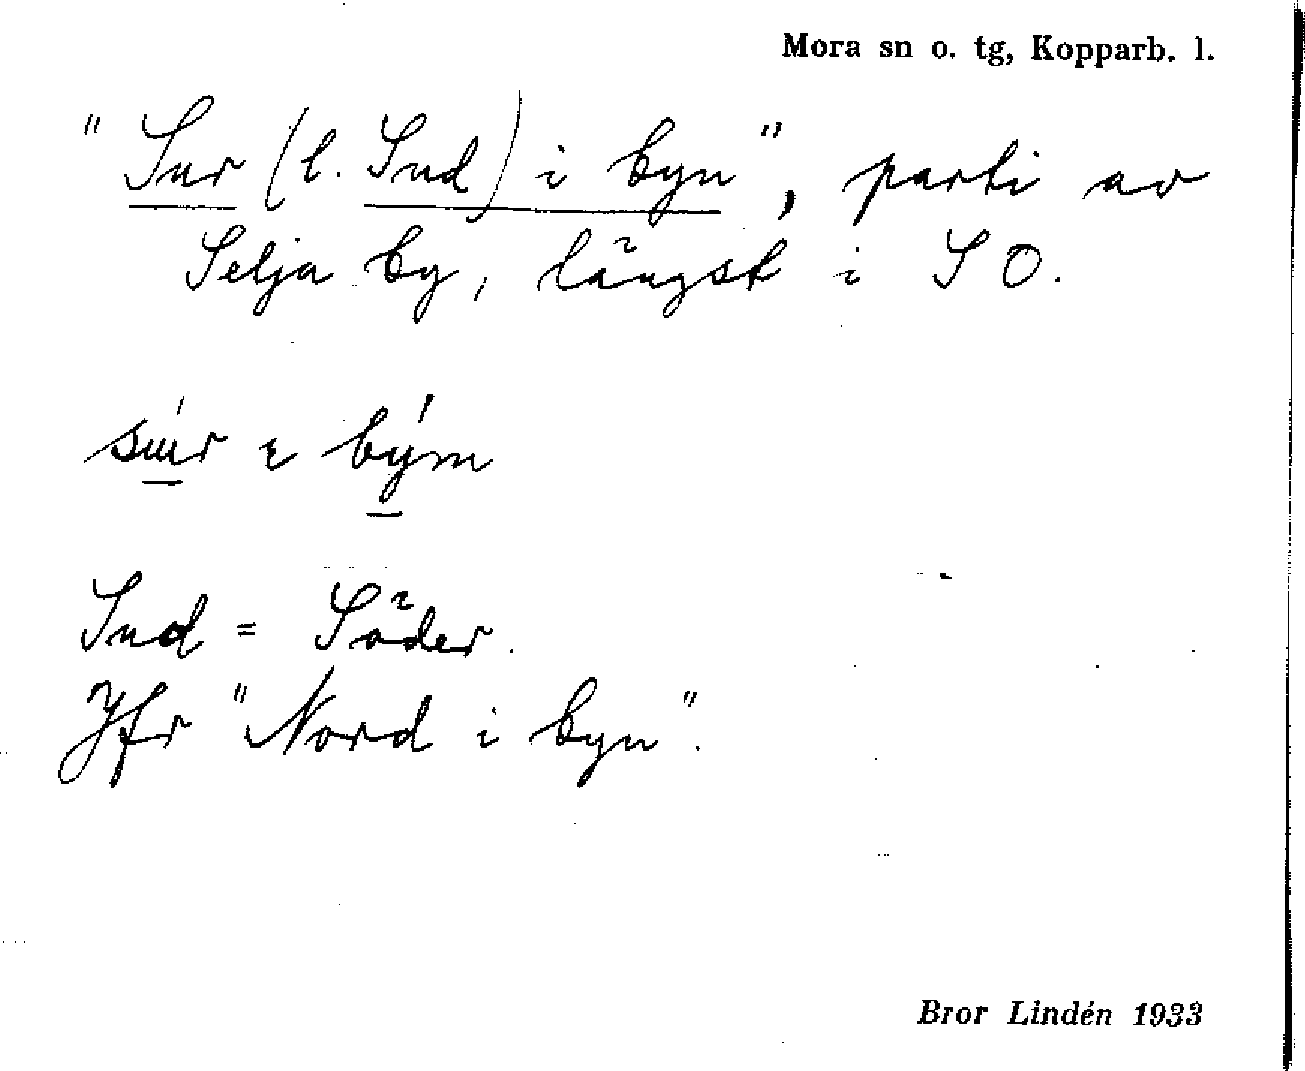 Mora sn o. tg, Kopparb. l.
"Sur (l. Sud) i byn", parti av
Selja by, längst i S O.
súr ɩ by´m
Sud = Söder.
Jfr "Nord i byn".
Bror Lindén 1933